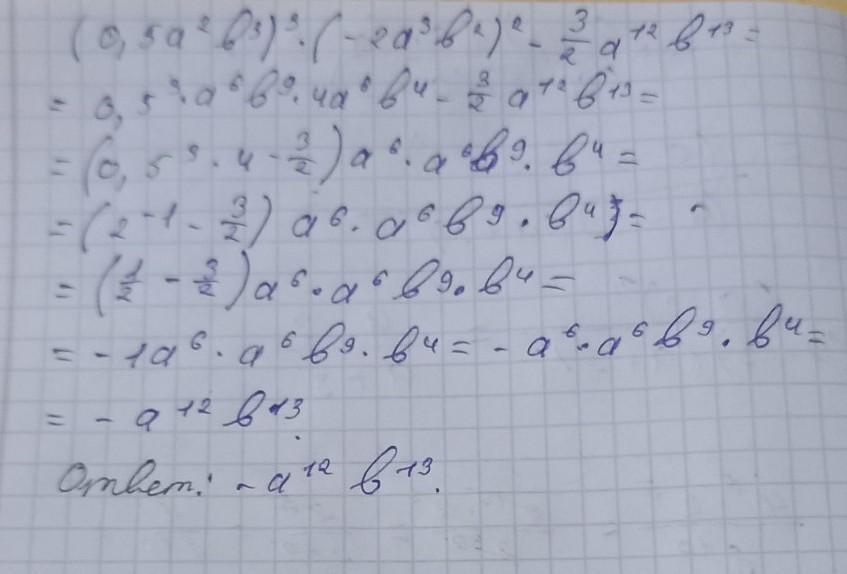 (0,5a²b³)³·(-2a³b²)² - 3/2 a¹²b¹³ =
= 0,5³·a⁶b⁹·4a⁶b⁴ - 3/2 a¹²b¹³ =
= (0,5³·4 - 3/2) a⁶·a⁶b⁹·b⁴ =
= (2⁻¹ - 3/2) a⁶·a⁶b⁹·b⁴ =
= (1/2 - 3/2) a⁶·a⁶b⁹·b⁴ =
= -1a⁶·a⁶b⁹·b⁴ = -a⁶·a⁶b⁹·b⁴ =
= -a¹²b¹³
Ответ: -a¹²b¹³.